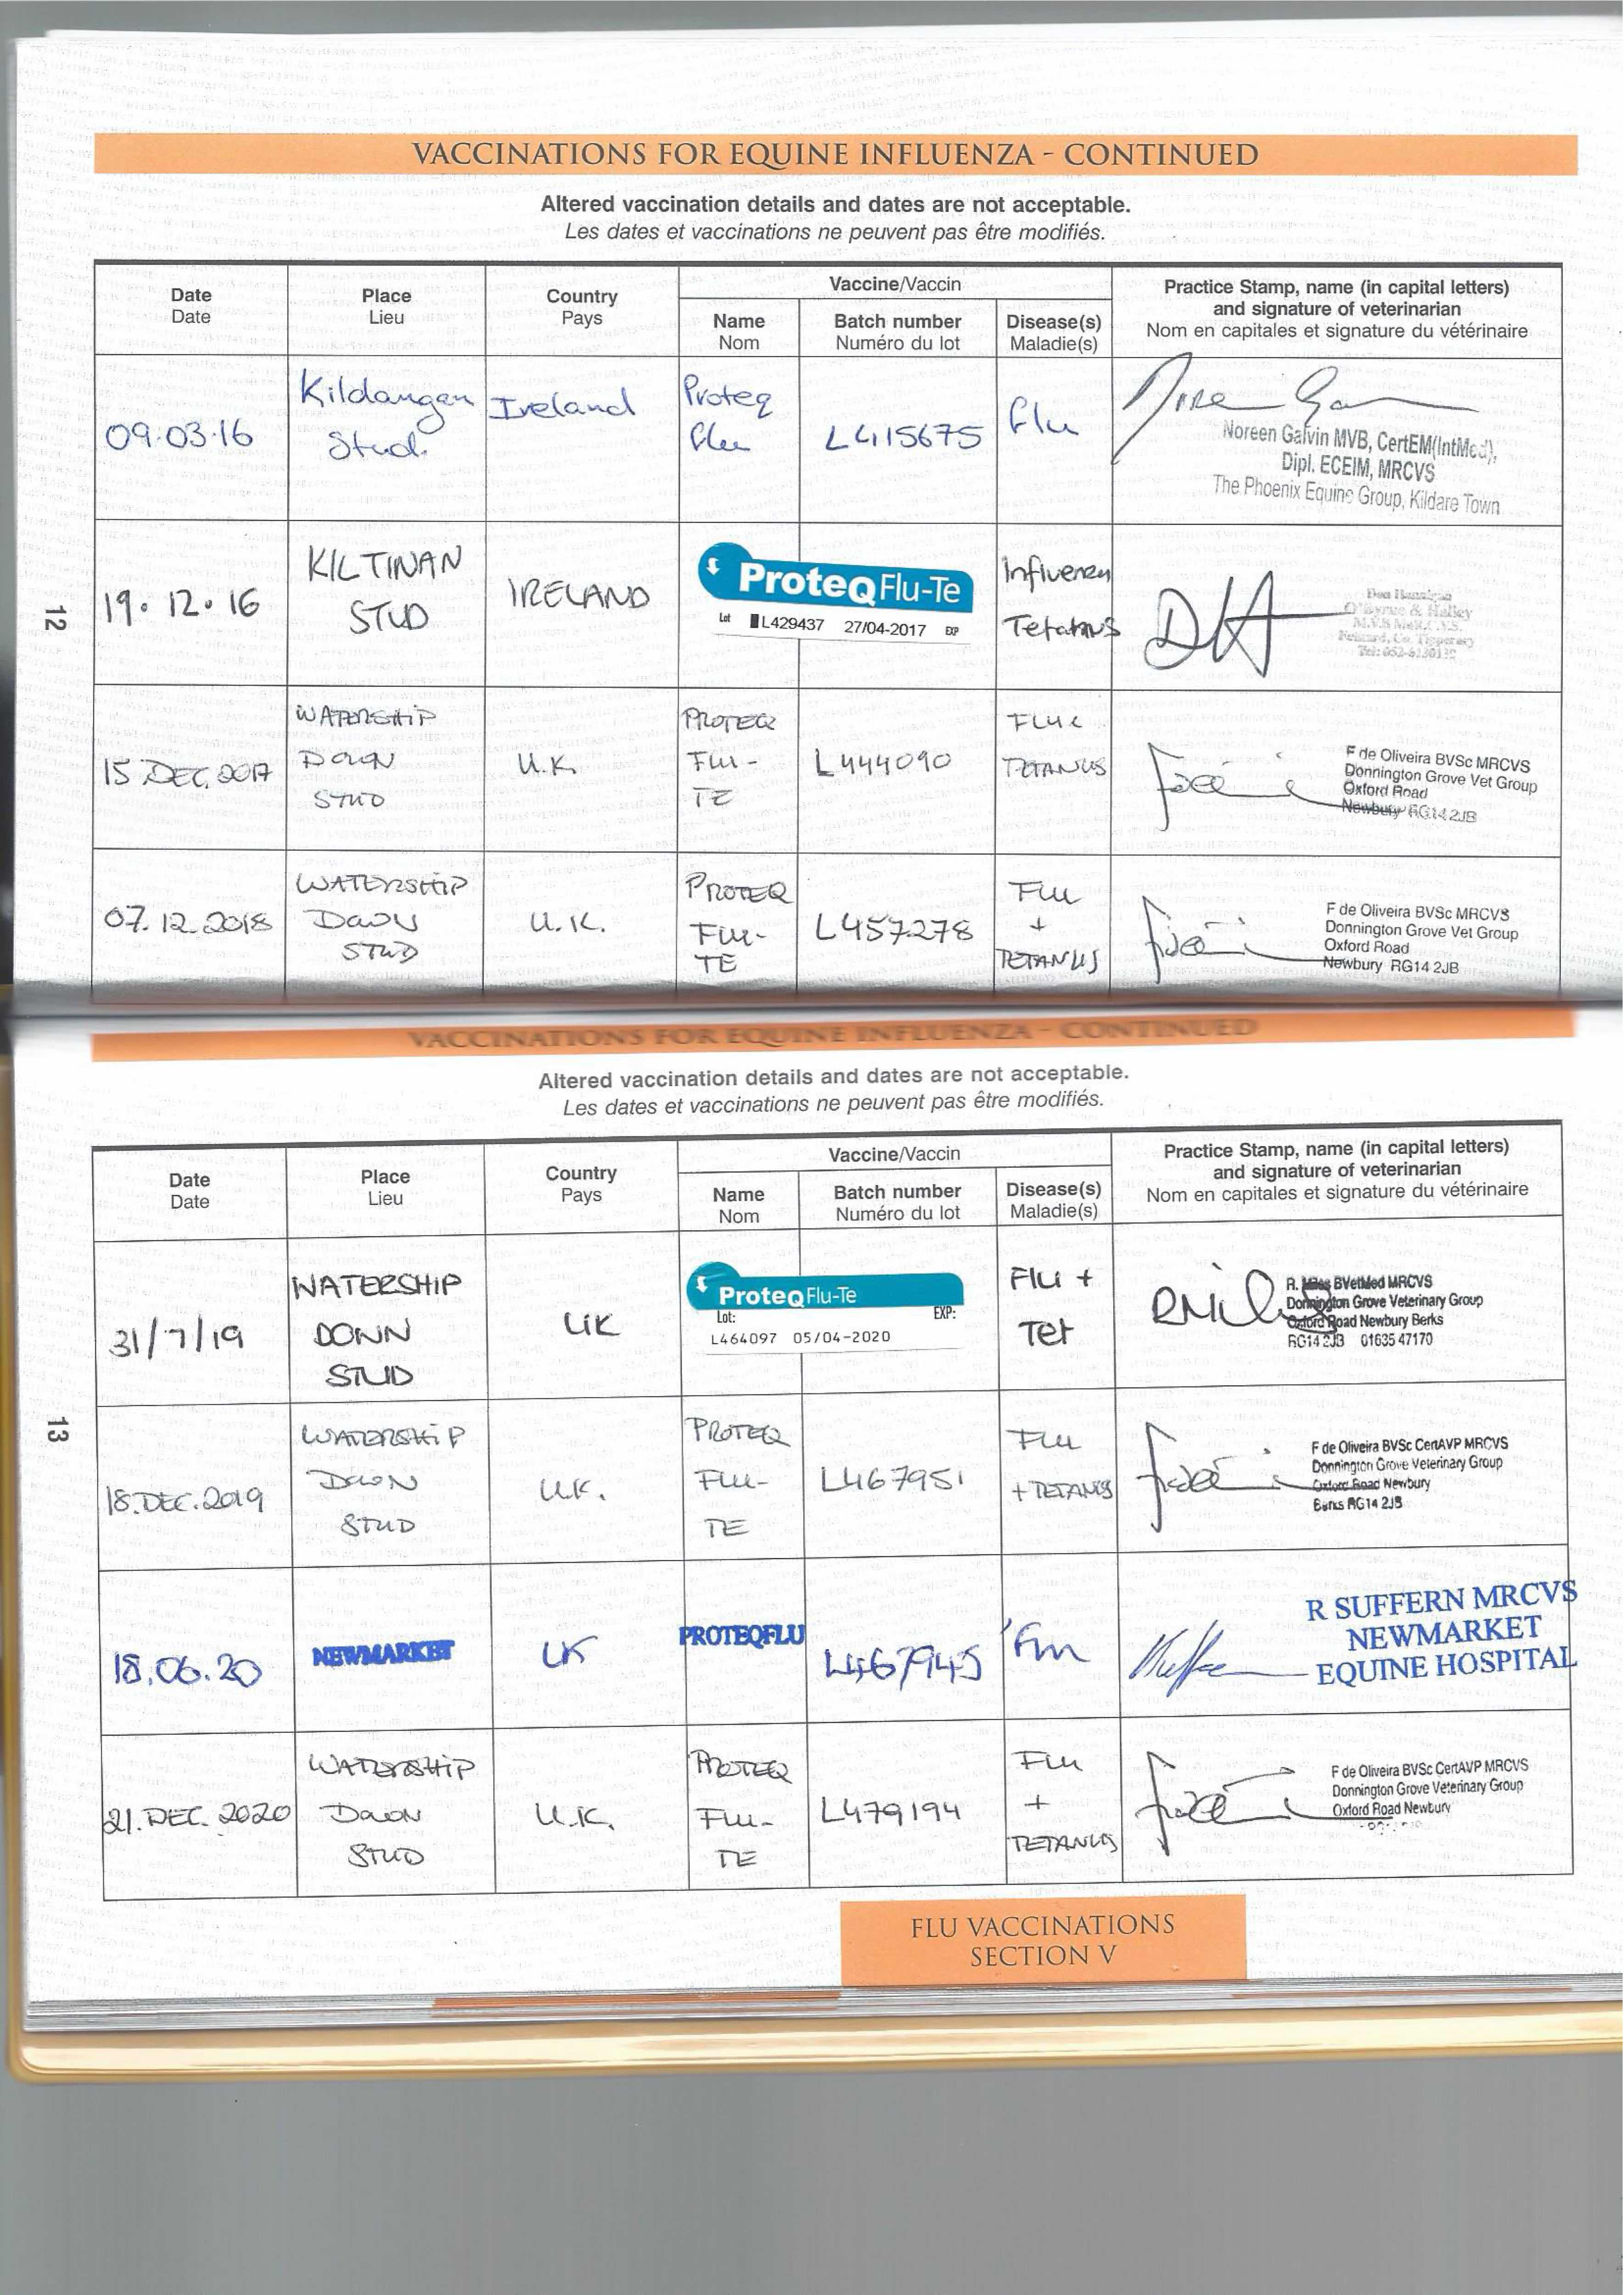 VACCINATIONS FOR EQUINE INFLUENZA - CONTINUED
Altered vaccination details and dates are not acceptable.
Les dates et vaccinations ne peuvent pas être modifiés.
Date
Date
Place
Lieu
Country
Pays
Vaccine/Vaccin
Name
Nom
Batch number
Numéro du lot
Disease(s)
Maladie(s)
Practice Stamp, name (in capital letters)
and signature of veterinarian
Nom en capitales et signature du vétérinaire
09.03.16
Kildangan
Stud.
Ireland
Proteq
flu
L415675
flu
Noreen Galvin MVB, CertEM(IntMed),
Dipl. ECEIM, MRCVS
The Phoenix Equine Group, Kildare Town
12
19.12.16
KILTINAN
STUD
IRELAND
ProteqFlu-Te
Lot L429437 27/04-2017 EXP
Influenza
Tetanus
O'Byrne & Halley
15.DEC.2017
WATERSHIP
DOWN
STUD
U.K.
PROTEQ
FLU-
TE
L444090
FLU &
TETANUS
F de Oliveira BVSc MRCVS
Donnington Grove Vet Group
Oxford Road
Newbury RG14 2JB
07.12.2018
WATERSHIP
DOWN
STUD
U.K.
PROTEQ
FLU-
TE
L457278
FLU
+
TETANUS
F de Oliveira BVSc MRCVS
Donnington Grove Vet Group
Oxford Road
Newbury RG14 2JB
VACCINATIONS FOR EQUINE INFLUENZA - CONTINUED
Altered vaccination details and dates are not acceptable.
Les dates et vaccinations ne peuvent pas être modifiés.
Date
Date
Place
Lieu
Country
Pays
Vaccine/Vaccin
Name
Nom
Batch number
Numéro du lot
Disease(s)
Maladie(s)
Practice Stamp, name (in capital letters)
and signature of veterinarian
Nom en capitales et signature du vétérinaire
31/7/19
WATERSHIP
DOWN
STUD
UK
ProteqFlu-Te
Lot: EXP:
L464097 05/04-2020
Flu +
Tet
R. BVetMed MRCVS
Donnington Grove Veterinary Group
Oxford Road Newbury Berks
RG14 2JB 01635 47170
13
18.DEC.2019
WATERSHIP
DOWN
STUD
U.K.
PROTEQ
FLU-
TE
L467951
FLU
+ TETANUS
F de Oliveira BVSc CertAVP MRCVS
Donnington Grove Veterinary Group
Oxford Road Newbury
Berks RG14 2JB
18.06.20
NEWMARKET
UK
PROTEQFLU
L467945
Flu
R SUFFERN MRCVS
NEWMARKET
EQUINE HOSPITAL
21.DEC.2020
WATERSHIP
DOWN
STUD
U.K.
PROTEQ
FLU-
TE
L479194
FLU
+
TETANUS
F de Oliveira BVSc CertAVP MRCVS
Donnington Grove Veterinary Group
Oxford Road Newbury
FLU VACCINATIONS
SECTION V